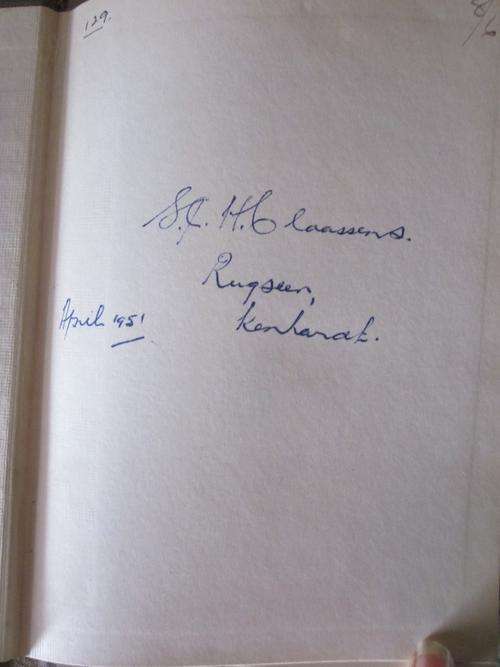 129.
8/6
S.J. H. Claassens.
Rugseer,
April 1951
Kenhardt.